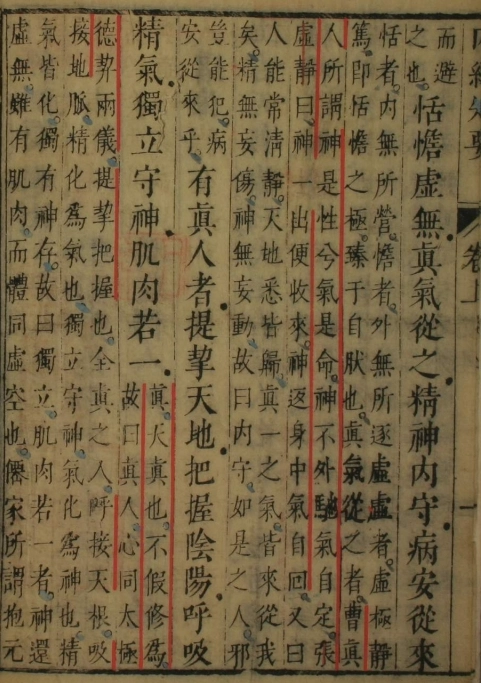 卷上
一
而避
之也
恬憺虛無眞氣從之精神內守病安從來
恬者內無所營憺者外無所逐虛虛者虛極靜
篤卽恬憺之極臻于自肰也眞氣從之者曹眞
人所謂神是性兮氣是命神不外馳氣自定張
虛靜曰神一出便收來神返身中氣自回又曰
人能常清靜天地悉皆歸眞一之氣皆來從我
矣精無妄傷神無妄動故曰內守如是之人邪
豈能犯病
安從來乎
有眞人者提挈天地把握陰陽呼吸
精氣獨立守神肌肉若一
眞天眞也不假修爲
故曰眞人心同太極
德契兩儀提挈把握也全眞之人呼接天根吸
接地脈精化爲氣也獨立守神氣化爲神也精
氣皆化獨有神存故曰獨立肌肉若一者神還
虛無雖有肌肉而體同虛空也僊家所謂抱元